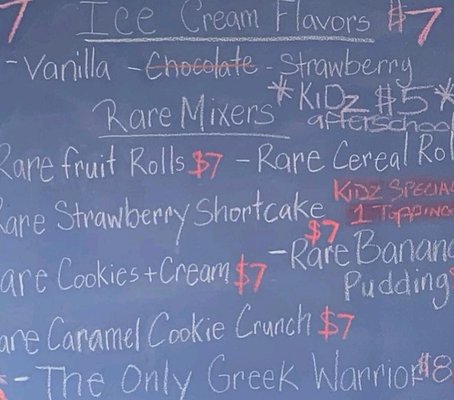 7 Ice Cream Flavors $7
- Vanilla - Chocolate - Strawberry
*KiDz $5*
afterschool
Rare Mixers
Rare fruit Rolls $7 - Rare Cereal Rol
KiDz SPECIAL
1 TOPPING
Rare Strawberry Shortcake $7
- Rare Banana
Pudding
are Cookies + Cream $7
are Caramel Cookie Crunch $7
- The Only Greek Warrior $8